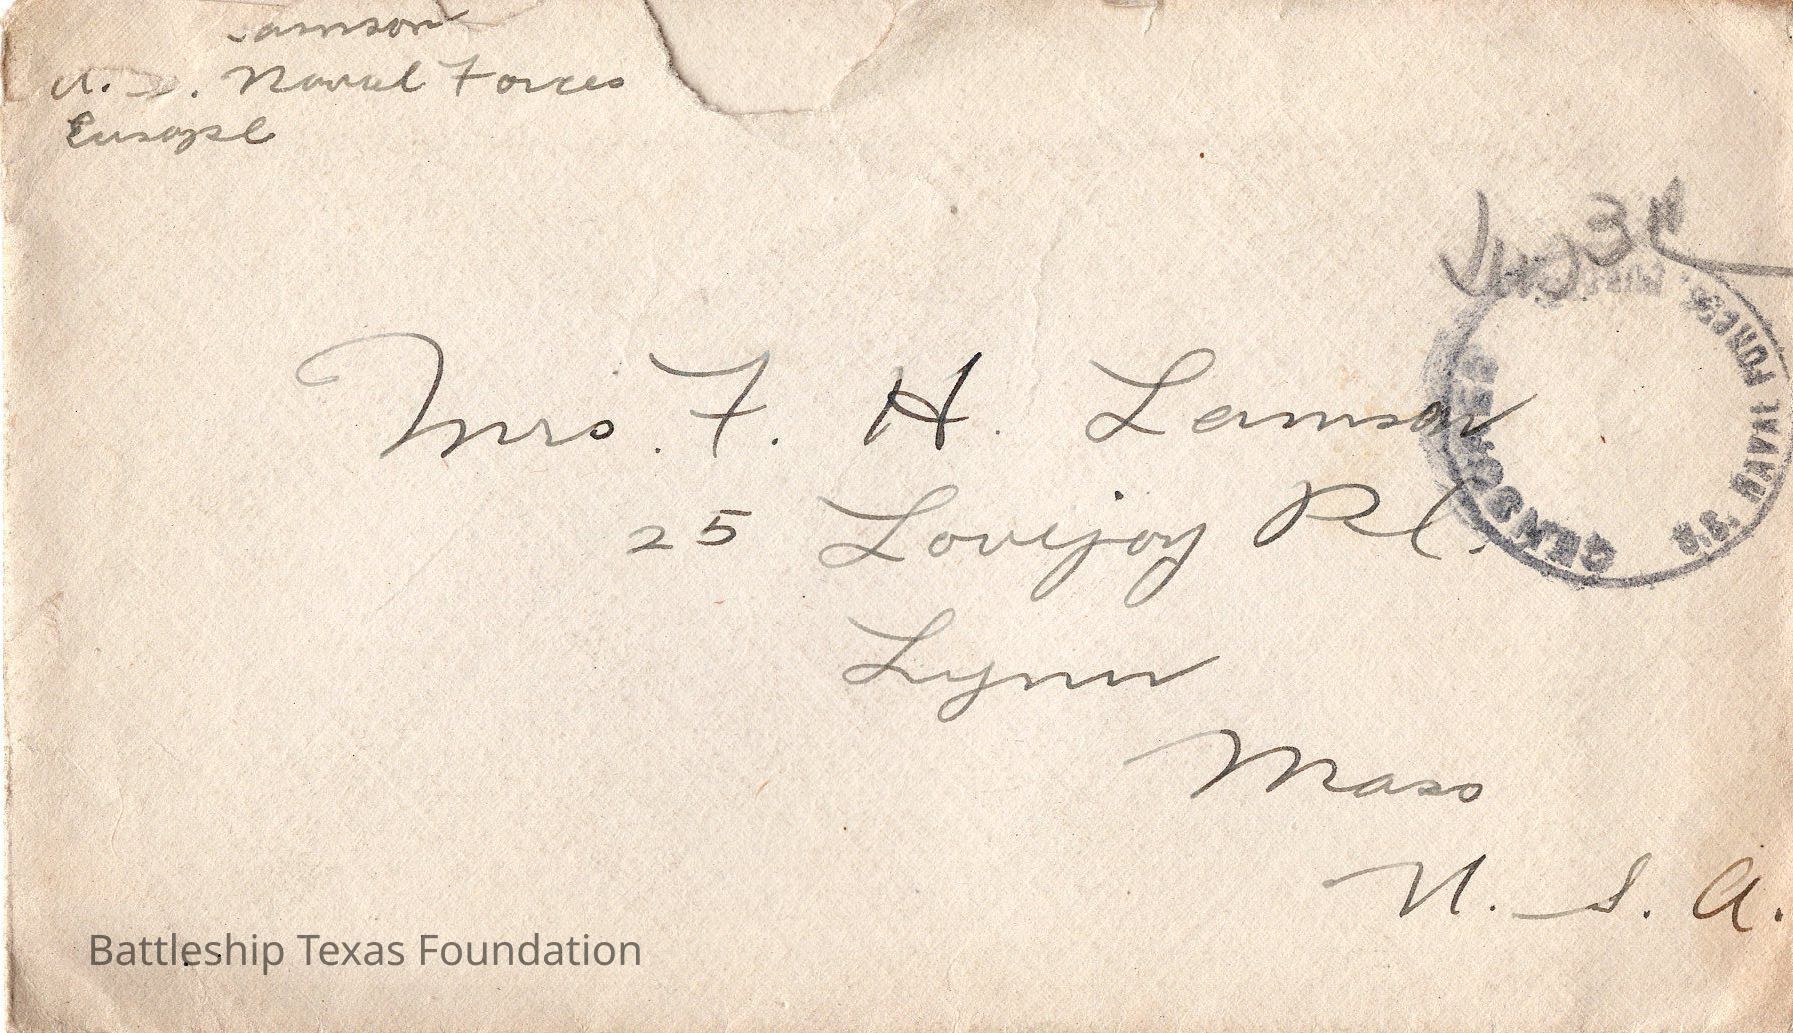 Lamson
U. S. Naval Forces
Europe
Mrs. F. H. Lamson
25 Lovejoy Pl.
Lynn
Mass
U. S. A.
CENSORED
U.S. NAVAL FORCES
Battleship Texas Foundation